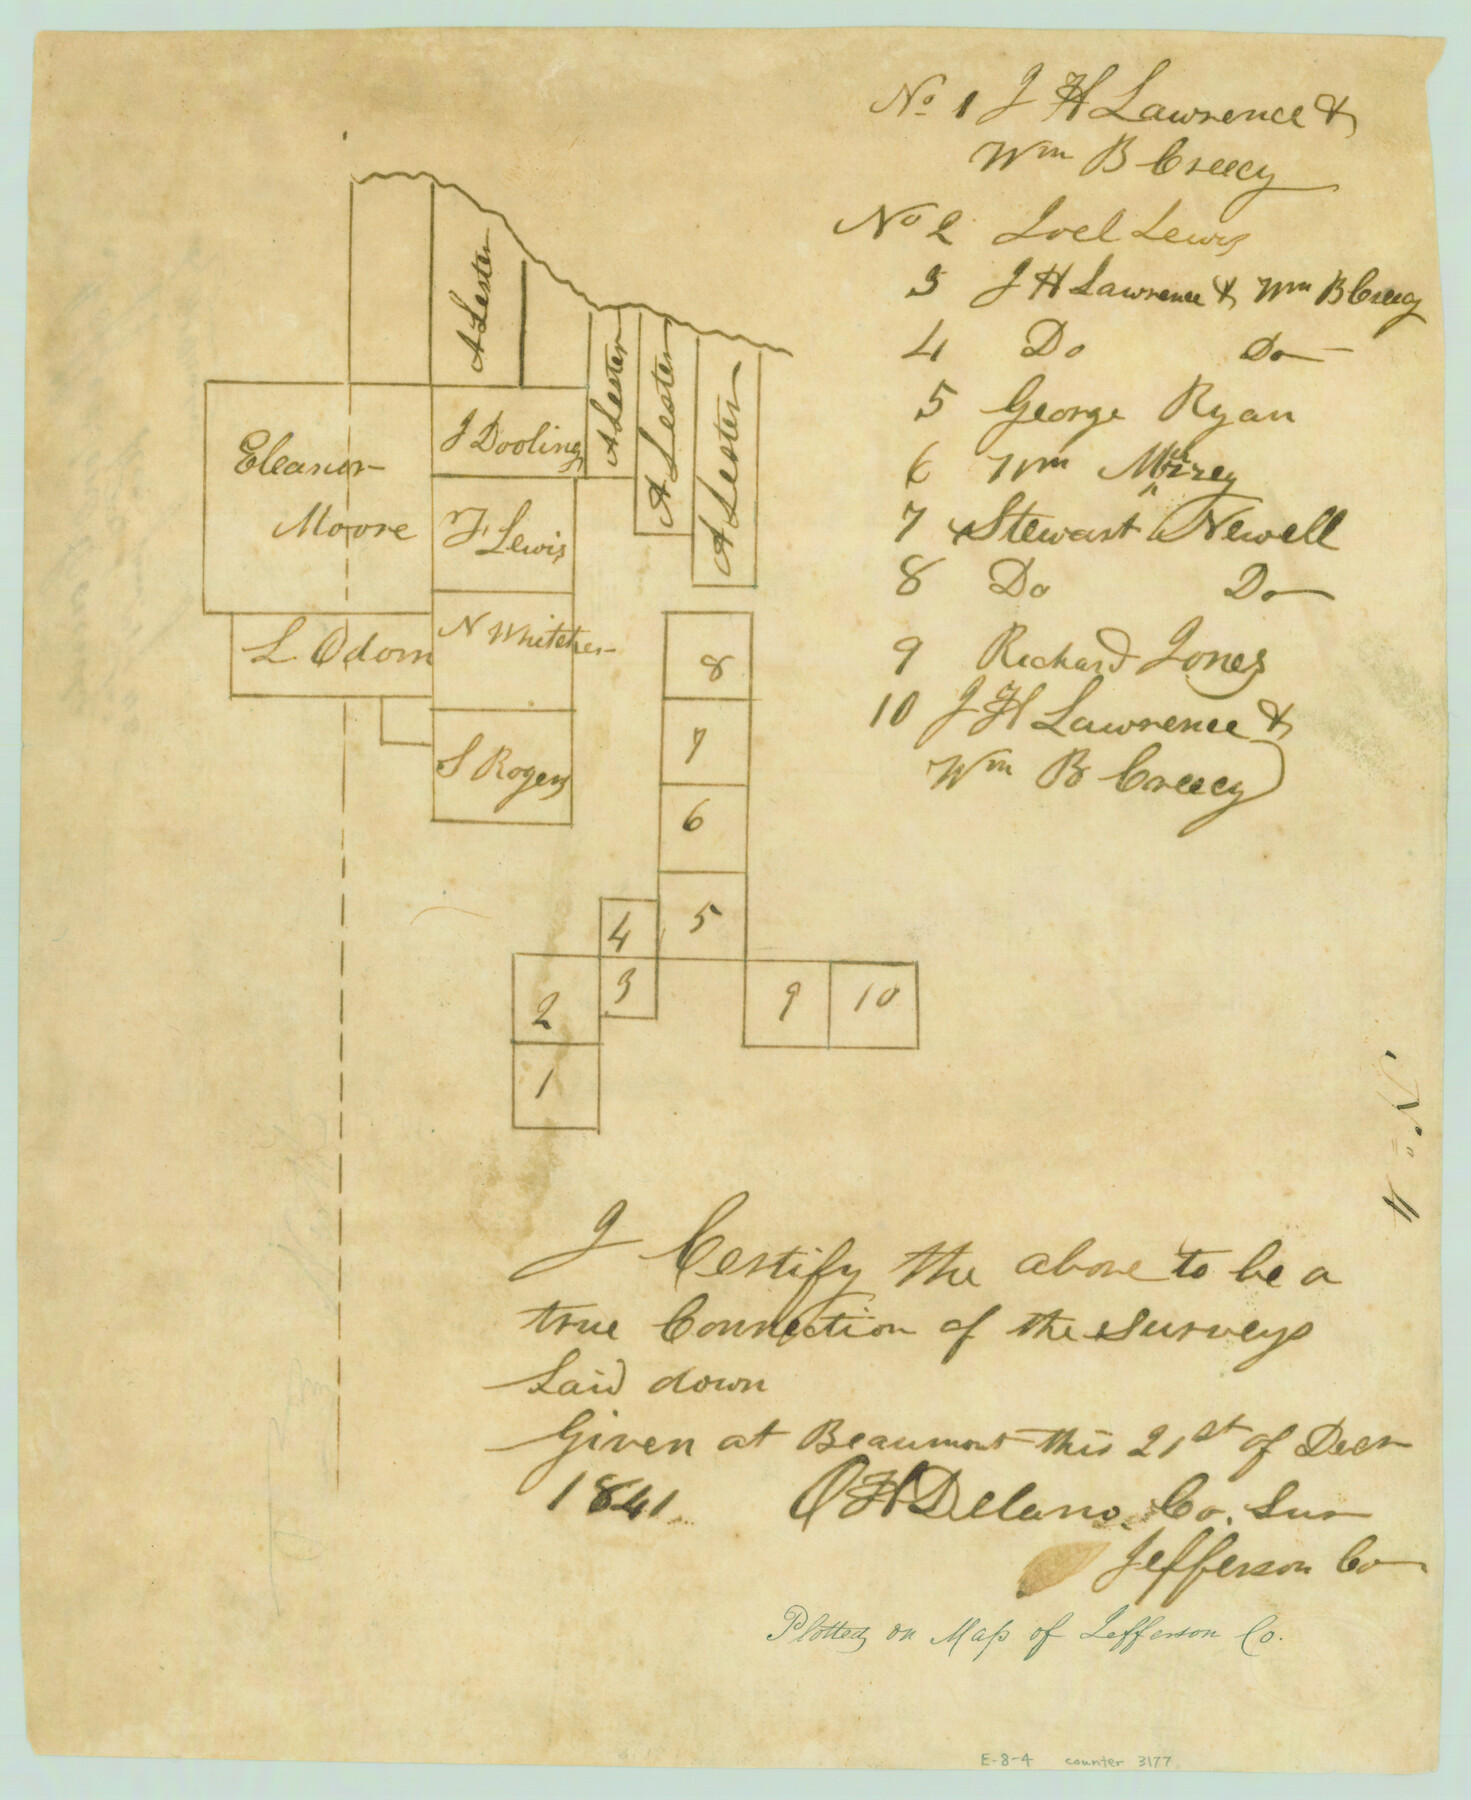 No 1 J H Lawrence &
Wm B Creecy
No 2 Joel Lewis
3 J H Lawrence & Wm B Creecy
4 Do Do
5 George Ryan
6 Wm
7 Stewart Newell
8 Do Do
9 Richard Jones
10 J H Lawrence &
Wm B Creecy
A Lester
A Lester
A Lester
A Lester
Eleanor
Moore
J Dooling
F Lewis
L Odom
N Whitcher
S Rogers
8
7
6
5
4
3
2
1
9
10
No 11
I Certify the above to be a
true Connection of the surveys
Laid down
Given at Beaumont this 21st of Decr
1841 O H Delano. Co. Sur
Jefferson Co
Plotted on Map of Jefferson Co.
E-8-4 counter 3177